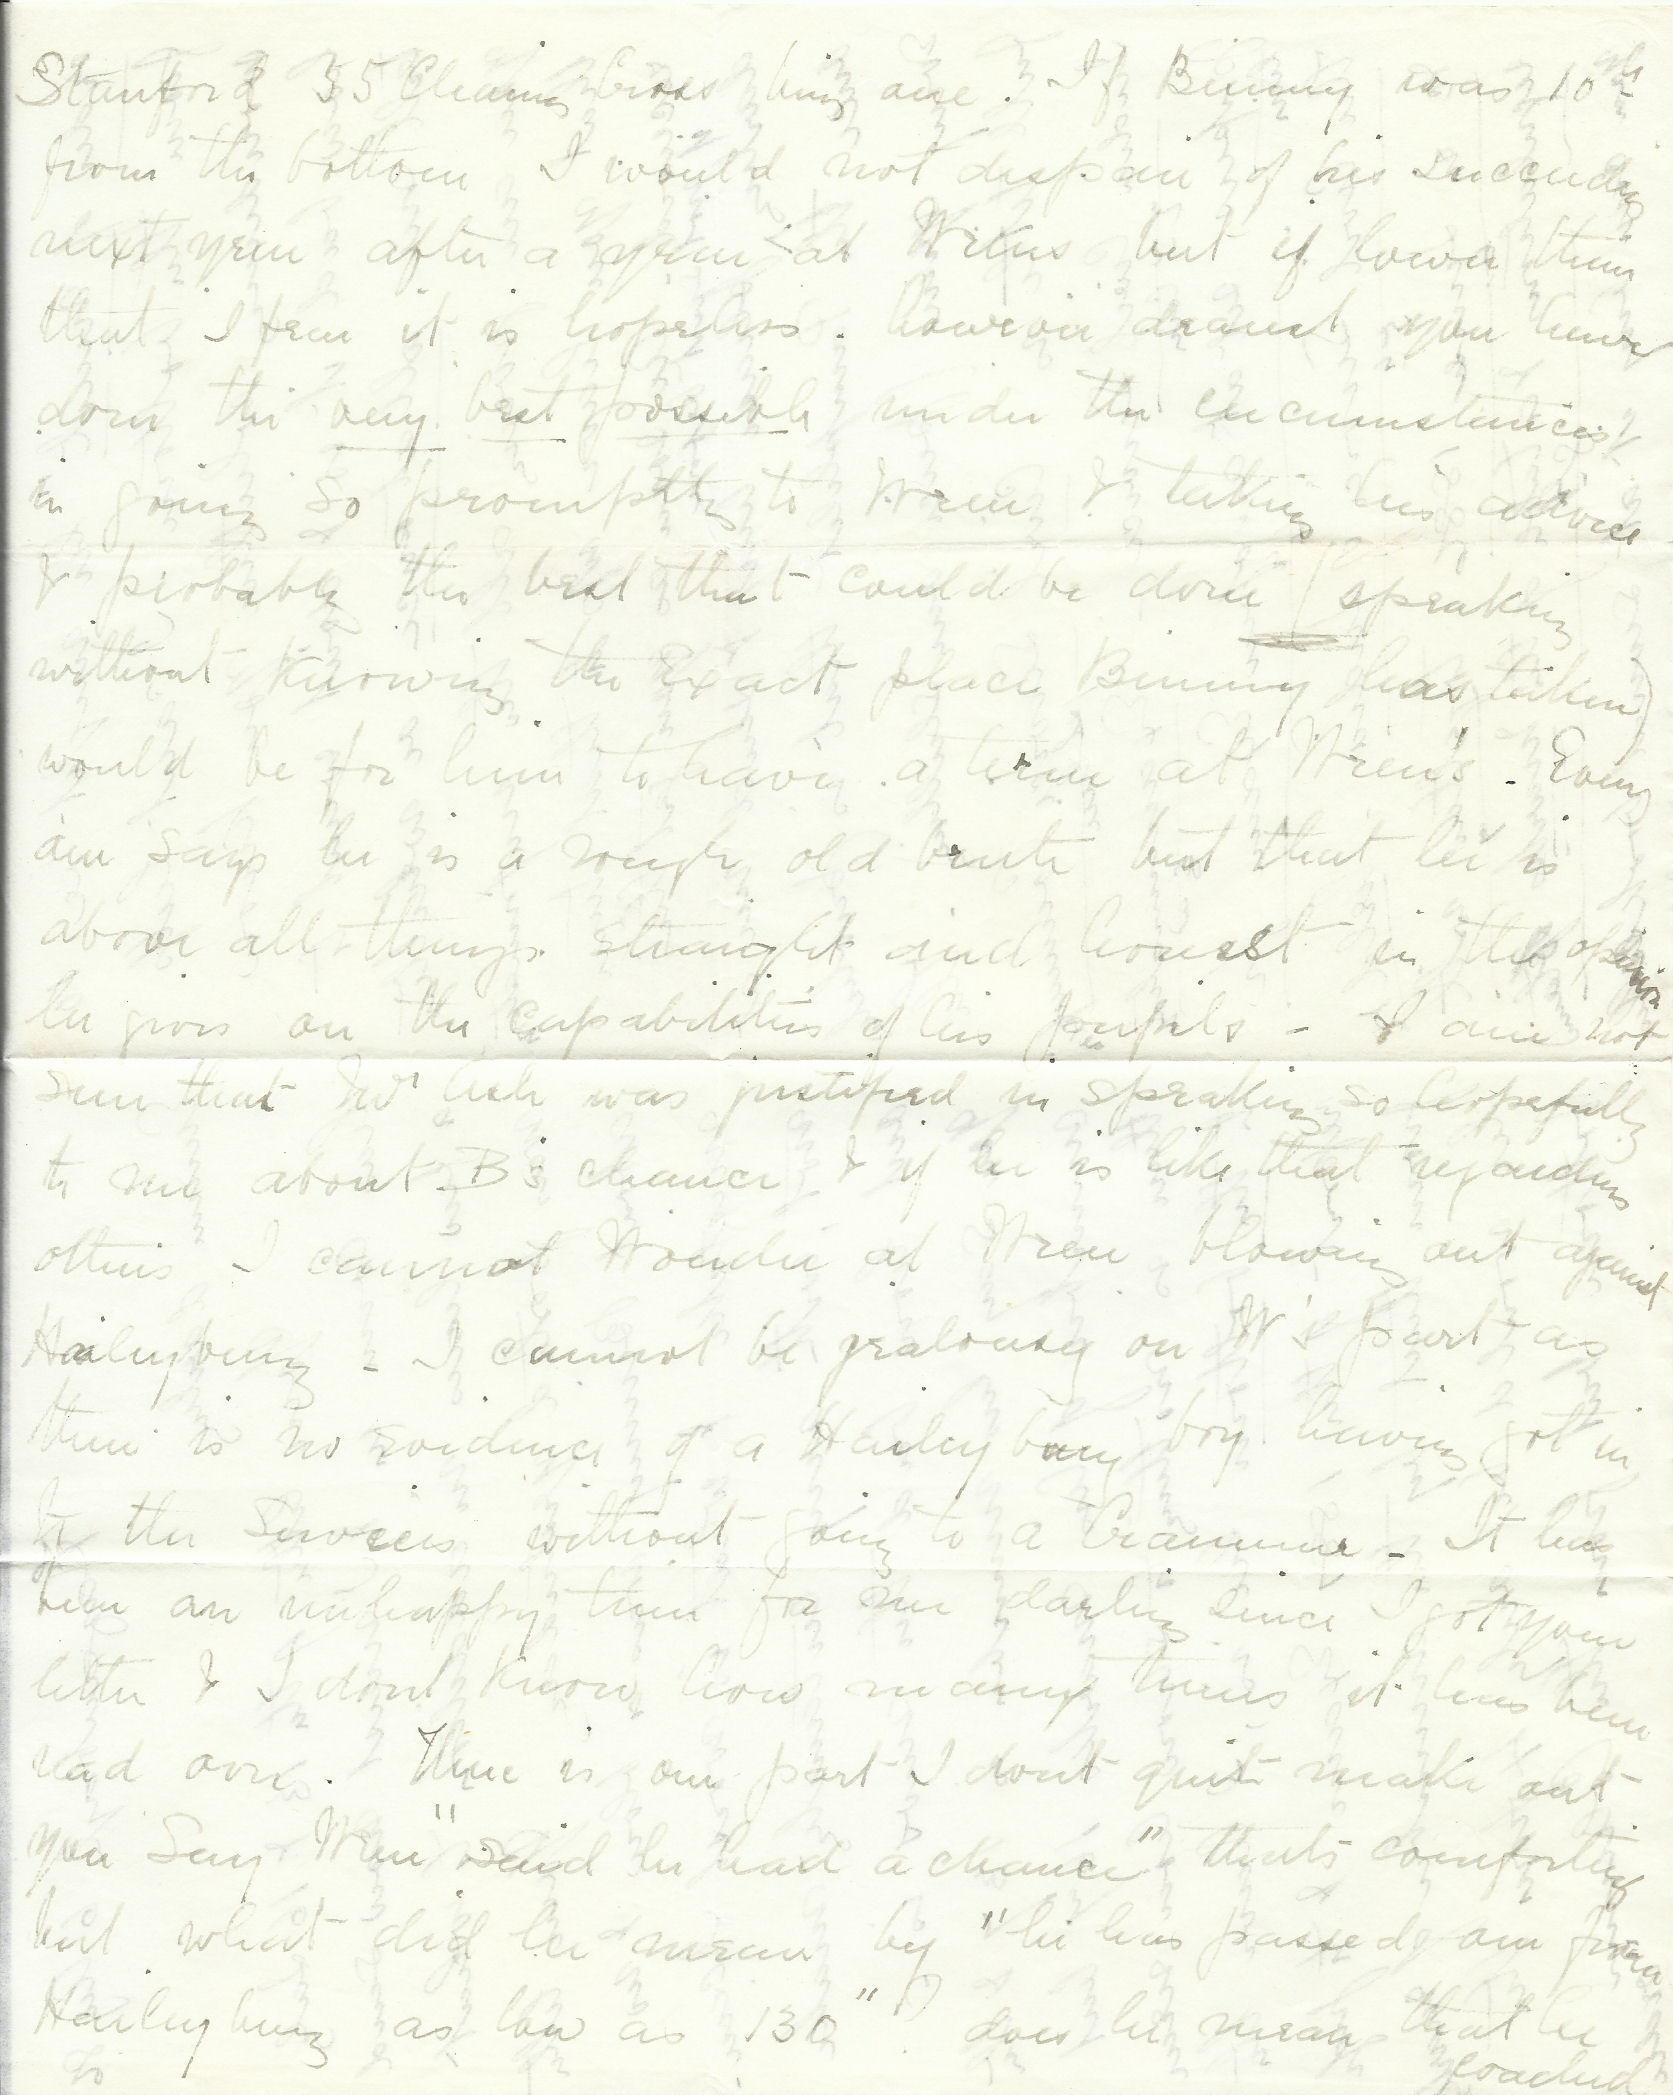 Stanford 55 Charing Cross has one. If Binny was 10th
from the bottom I would not despair of his succeeding
next year after a year at Wrens but if lower than
that I fear it is hopeless. however dearest you have
done the very best possible under the circumstances
in going so promptly to Wren & taking his advice
& probably the best that could be done (speaking
without knowing the exact place Binny has taken)
would be for him to have a term at Wren's. Every
one says he is a rough old brute but that he is
above all things straight and honest in the opinion
he gives on the capabilities of his pupils - I am not
sure that was justified in speaking so hopefully
to me about B's chance & if he is like that regarding
others I cannot wonder at Wren blowing out against
Haileybury - I cannot be jealousy on W's part as
there is no evidence of a Haileybury boy having got in
to the Services without going to a Crammer - It has
been an unhappy time for me darling since I got your
letter & I dont know how many times it has been
read over. There is one part I dont quite make out
you say Wren "said he had a chance" thats comforting
but what did he mean by "he has passed one from
Haileybury as low as 130"? does he mean that he
coached